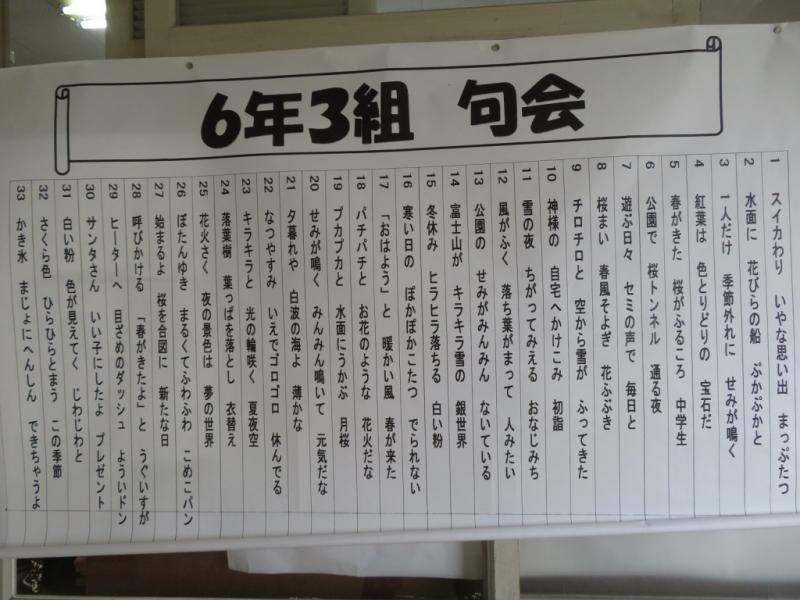 6年3組 句会
1 スイカわり いやな思い出 まっぷたつ
2 水面に 花びらの船 ぷかぷかと
3 一人だけ 季節外れに せみが鳴く
4 紅葉は 色とりどりの 宝石だ
5 春がきた 桜がふるころ 中学生
6 公園で 桜トンネル 通る夜
7 遊ぶ日々 セミの声で 毎日と
8 桜まい 春風そよぎ 花ふぶき
9 チロチロと 空から雪が ふってきた
10 神様の 自宅へかけこみ 初詣
11 雪の夜 ちがってみえる おなじみち
12 風がふく 落ち葉がまって 人みたい
13 公園の せみがみんみん ないている
14 富士山が キラキラ雪の 銀世界
15 冬休み ヒラヒラ落ちる 白い粉
16 寒い日の ぽかぽかこたつ でられない
17 「おはよう」と 暖かい風 春が来た
18 パチパチと お花のような 花火だな
19 プカプカと 水面にうかぶ 月桜
20 せみが鳴く みんみん鳴いて 元気だな
21 夕暮れや 白波の海よ 薄かな
22 なつやすみ いえでゴロゴロ 休んでる
23 キラキラと 光の輪咲く 夏夜空
24 落葉樹 葉っぱを落とし 衣替え
25 花火さく 夜の景色は 夢の世界
26 ぼたんゆき まるくてふわふわ こめこパン
27 始まるよ 桜を合図に 新たな日
28 呼びかける 「春がきたよ」と うぐいすが
29 ヒーターへ 目ざめのダッシュ よういドン
30 サンタさん いい子にしたよ プレゼント
31 白い粉 色が見えてく じわじわと
32 さくら色 ひらひらとまう この季節
33 かき氷 まじょにへんしん できちゃうよ